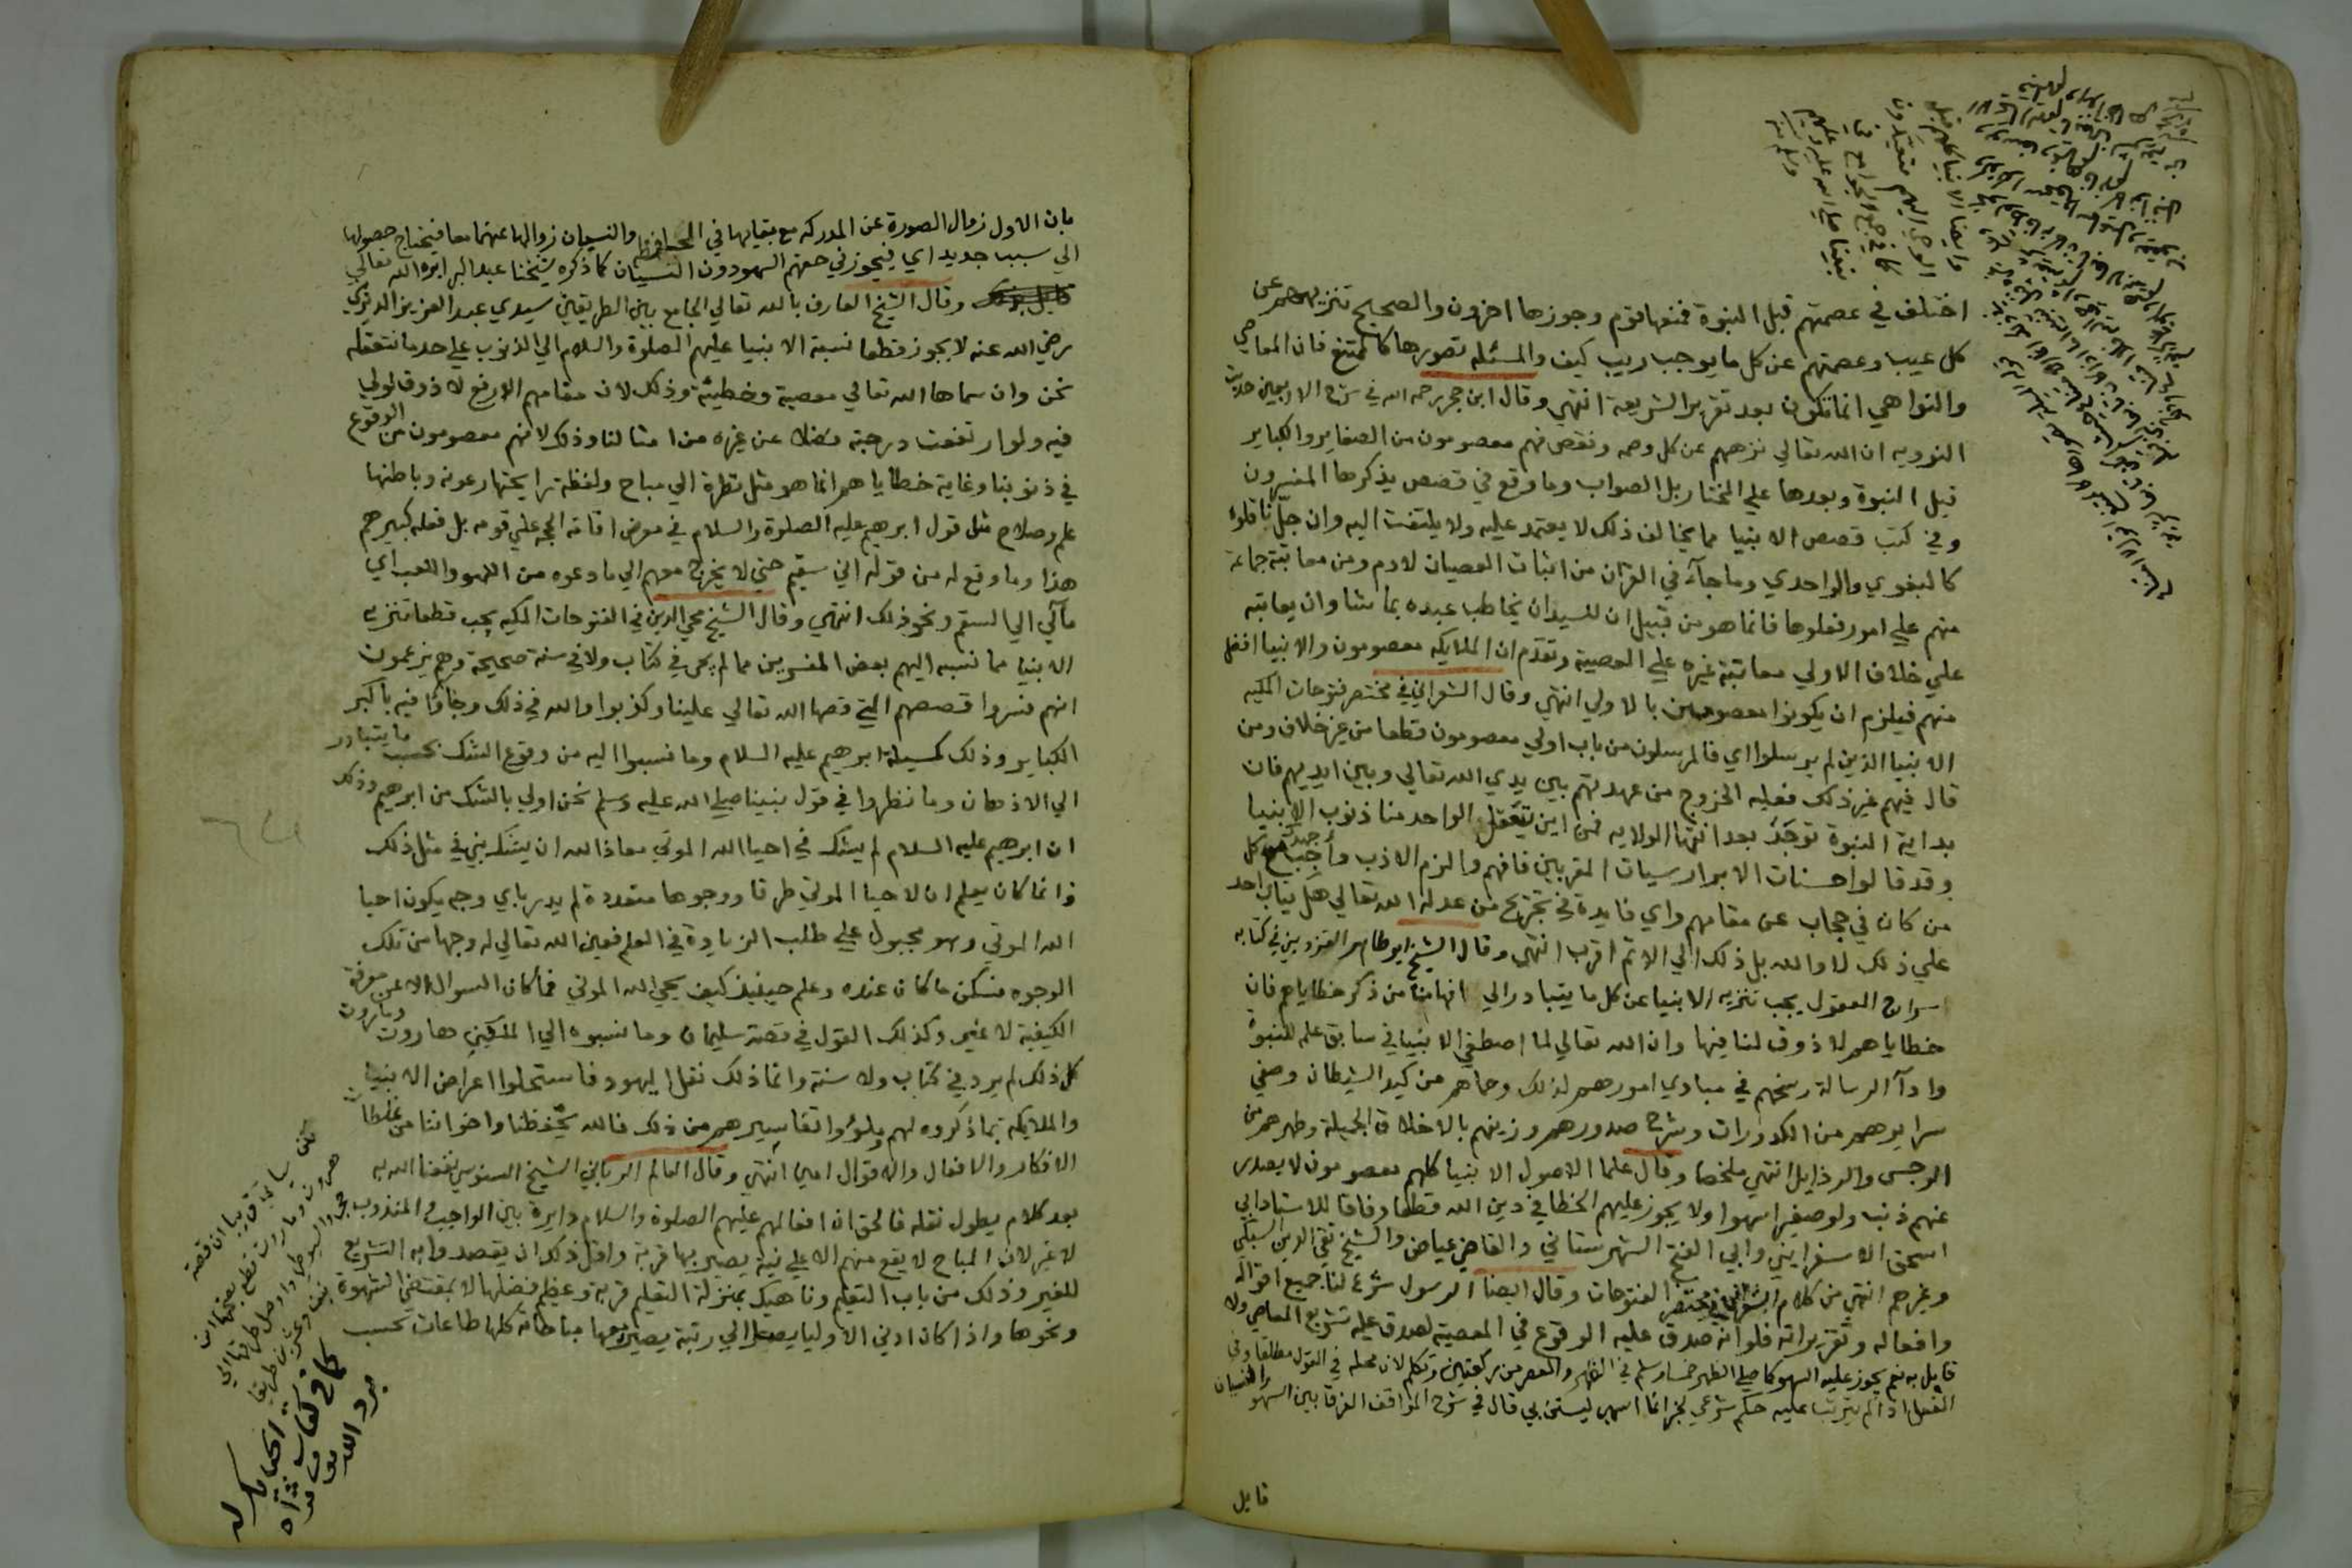 اختلف في عصمتهم قبل النبوة فمنعها قوم وجوزها اخرون والصحيح تنزيههم عن
كل عيب وعصمتهم عن كل ما يوجب ريب كيف والمسئله تصورها كالممتنع فان المعاصي
والنواهي انما تكون بعد تقرير الشريعة انتهي وقال ابن حجر رحمه الله في شرح الاربعين حديث
النوويه ان الله تعالي نزههم عن كل وصمه ونقص فهم معصومون من الصغاير والكباير
قبل النبوة وبعدها علي المختار بل الصواب وما وقع في قصص يذكرها المفسرون
وفي كتب قصص الانبيا مما يخالف ذلك لا يعتمد عليه ولا يلتفت اليه وان جل ناقلوه
كالبغوي والواحدي وما جآء في القران من اثبات العصيان لادم ومن معاتبة جماعة
منهم علي امور فعلوها فانما هو من قبيل ان للسيد ان يخاطب عبده بما شا وان يعاتبه
علي خلاف الاولي معاتبة غيره علي المعصية وتقدم ان الملايكه معصومون والانبيا افضل
منهم فيلزم ان يكونوا معصومين بالاولي انتهي وقال الشعراني في مختصر فتوحات المكيه
الانبيا الذين لم يرسلوا اي فالمرسلون من باب اولي معصومون قطعا من غير خلاف ومن
قال فيهم غير ذلك فعليه الخروج من عهدتهم بين يدي الله تعالي وبين ايديهم فان
بداية النبوة توخذ بعد انتها الولايه فمن اين يتعقل الواحد منا ذنوب الانبيا
وقد قالوا حسنات الابرار سيات المقربين فافهم والزم الادب واجب عن كل
من كان في حجاب عن مقامهم واي فايدة في تجريح من عدله الله تعالي هل يثاب احد
علي ذلك لا والله بل ذلك الي الاثم اقرب انتهي وقال الشيخ ابو طاهر القزويني في كتابه
سراج العقول يجب تنزيه الانبيا عن كل ما يتبادر الي افهامنا من ذكر خطاياهم فان
خطاياهم لا ذوق لنا فيها وان الله تعالي لما اصطفي الانبيا في سابق علمه للنبوة
وادآ الرسالة رسخهم في مبادي امورهم لذلك وحماهم من كيد الشيطان وصفي
سرايرهم من الكدورات وشرح صدورهم وزينهم بالاخلاق الجميلة وطهرهم من
الرجس والرذايل انتهي ملخصا وقال علما الاصول الانبيا كلهم معصومون لا يصدر
عنهم ذنب ولو صغيرا سهوا ولا يجوز عليهم الخطا في دين الله قطعا وفاقا للاستاد ابي
اسحق الاسفرايني وابي الفتح الشهرستاني والقاضي عياض والشيخ تقي الدين السبكي
وغيرهم انتهي من كلام الشعراني في مختصر الفتوحات وقال ايضا الرسول شرع لنا جميع اقواله
وافعاله وتقريراته فلو انه صدق عليه الوقوع في المعصية لصدق عليه تشريع المعاصي ولا
قايل به نعم يجوز عليه السهو كما صلي الظهر خمسا وسلم في الظهر والعصر من ركعتين وتكلم لان محله في القول مطلقا وفي
الفعل اذا لم يترتب عليه حكم شرعي لخبر انما اسهي ليستن بي قال في شرح المواقف الفرق بين السهو والنسيان
قايل
بان الاول زوال الصورة عن المدركه مع بقايها في الحافظه والنسيان زوالها عنهما معا فيحتاج حصولها
الي سبب جديد اي فيجوز في حقهم السهو دون النسيان كما ذكره شيخنا عبد البر ايده الله تعالي
وقال الشيخ العارف بالله تعالي الجامع بين الطريقين سيدي عبد العزيز الديريني
رضي الله عنه لا يجوز قطعا نسبة الانبيا عليهم الصلوة والسلام الي الذنوب علي حد ما نتعقله
نحن وان سماها الله تعالي معصية وخطيئة وذلك لان مقامهم الارفع لا ذوق لولي
فيه ولو ارتفعت درجته فضلا عن غيره من امثالنا وذلك لانهم معصومون من الوقوع
في ذنوبنا وغاية خطاياهم انما هو مثل نظرة الي مباح ولفظة
علم وصلاح مثل قول ابرهيم عليه الصلوة والسلام في معرض اقامة الحجه علي قومه بل فعله كبيرهم
هذا وما وقع له من قوله اني سقيم حتي لا يخرج معهم الي ما دعوه من اللهو واللعب اي
مآلي الي السقم ونحو ذلك انتهي وقال الشيخ محي الدين في الفتوحات المكيه يجب قطعا تنزيه
الانبيا مما نسبه اليهم بعض المفسرين مما لم يجي في كتاب ولا في سنة صحيحة وهم يزعمون
انهم فسروا قصصهم التي قصها الله تعالي علينا وكذبوا والله في ذلك وجاؤا فيه باكبر
الكباير وذلك كمسيلة ابرهيم عليه السلام وما نسبوا اليه من وقوع الشك بحسب ما يتبادر
الي الاذهان وما نظروا في قول نبينا صلي الله عليه وسلم نحن اولي بالشك من ابرهيم وذلك
ان ابرهيم عليه السلام لم يشك في احيا الله الموتي معاذ الله ان يشك نبي في مثل ذلك
وانما كان يعلم ان لاحيا الموتي طرقا ووجوها متعددة لم يدر باي وجه يكون احيا
الله الموتي وهو مجبول علي طلب الزيادة في العلم فعين الله تعالي له وجها من تلك
الوجوه فسكن ما كان عنده وعلم حينيذ كيف يحي الله الموتي فما كان السوال الا عن معرفة
الكيفية لا غير وكذلك القول في قصة سليمان وما نسبوه الي الملكين هاروت وماروت
كل ذلك لم يرد في كتاب ولا سنة وانما ذلك نقل اليهود فاستحلوا اعراض الانبيا
والملايكه بما ذكروه لهم وملؤا تفاسيرهم من ذلك فالله يحفظنا واخواننا من غلطات
الافكار والافعال والاقوال امين انتهي وقال العالم الرباني الشيخ السنوسي نفعنا الله به
بعد كلام يطول نقله فالحق ان افعالهم عليهم الصلوة والسلام دايرة بين الواجب والمندوب
لا غير لان المباح لا يقع منهم الا علي نية يصير بها قربة واقل ذلك ان يقصدوا به التشريع
للغير وذلك من باب التعليم وناهيك بمنزلة التعليم قربة وعظيم فضلها لا بمقتضي الشهوة
ونحوها واذا كان ادني الاوليا يصل الي رتبة يصير معها مباحاته كلها طاعات بحسب